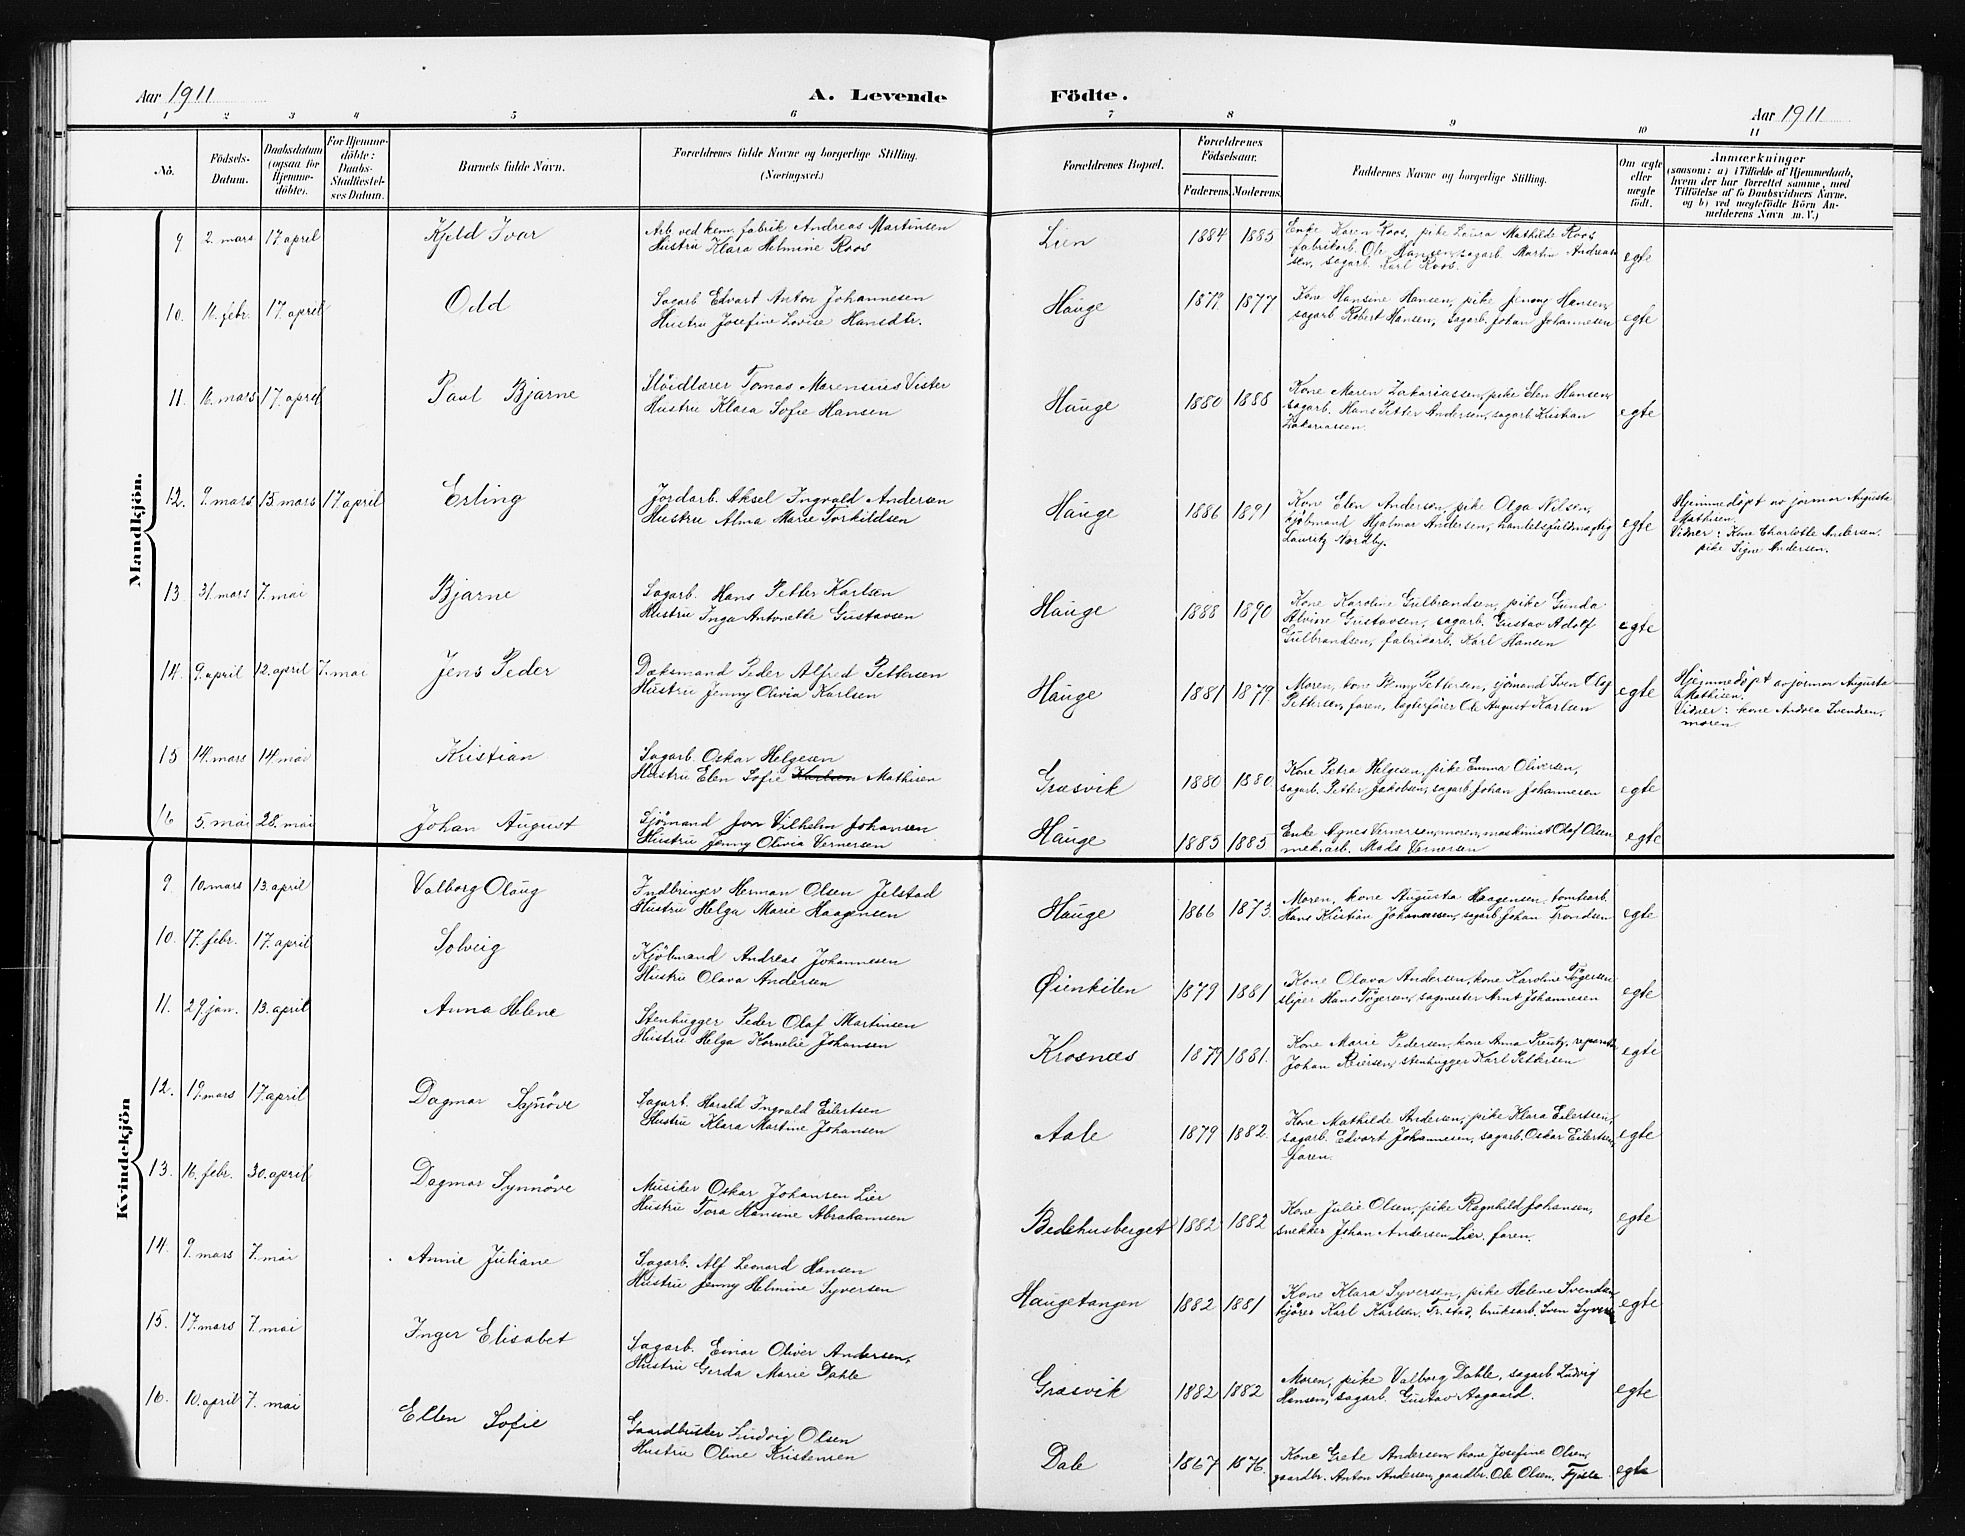 Aar 1911 A. Levende Födte. Aar 1911
1 2 3 4 5 6 7 8 9 10 11
No. Födsels-Datum. Daabsdatum (ogsaa for Hjemme-döbte). For Hjemme-döbte: Daabs-Stadfæstel-ses Datum. Barnets fulde Navn. Forældrenes fulde Navne og borgerlige Stilling. (Næringsvei.) Forældrenes Bopæl. Forældrenes Födselsaar. Faderens. Moderens. Faddernes Navne og borgerlige Stilling. Om ægte eller uægte födt. Anmærkninger (saasom: a) i Tilfælde af Hjemmedaab, hvem der har forrettet samme, med Tilföielse af to Daabsvidners Navne, og b) ved uægtefödte Börn An-melderens Navn m. V.)
Mandkjön.
9 2. mars 17 april Kjeld Ivar Arb ved kem. fabrik Andreas Martinsen
Hustru Klara Helmine Roos Lien 1884 1885 Enke Karen Roos, pike Laura Mathilde Roos,
fabrikarb. Ole Hansen, sagarb. Martin Andrea-
sen, sagarb. Karl Roos. egte
10. 16. febr. 17. april Odd Sagarb Edvart Anton Johannesen
Hustru Josefine Lovise Hansdtr. Hauge 1879 1877 Kone Hansine Hansen, pike Jenny Hansen,
sagarb Robert Hansen, sagarb. Johan Johannesen egte
11. 16. mars 17. april Paul Bjarne Slöidlærer Tomas Marensius Vister
Hustru Klara Sofie Hansen Hauge 1880 1888 Kone Maren Zakariassen, pike Elen Hansen,
sagarb. Hans Petter Andersen, sagarb Kristian
Zakariassen. egte
12. 9. mars 15. mars 17. april Erling Jordarb. Aksel Ingvald Andersen
Hustru Alma Marie Torkildsen Hauge 1886 1891 Kone Elen Andersen, pike Olga Nilsen,
sjömand Hjalmar Andersen, handelsfuldmægtig
Lauritz Nordby. egte Hjemmedöpt av jormor Augusta
Mathisen.
Vidner: Kone Charlotte Andersen.
pike Signe Andersen.
13. 31. mars 7. mai Bjarne Sagarb. Hans Petter Karlsen
Hustru Inga Antonette Gustavsen Hauge 1888 1890 Kone Karoline Gulbrandsen, pike Gunda
Alvine Gustavsen, sagarb. Gustav Adolf
Gulbrandsen, fabrikarb. Karl Hansen egte
14. 9. april 12. april 7. mai Jens Peder Dæksmand Peder Alfred Pettersen
Hustru Jenny Olivia Karlsen Hauge 1881 1879. Moren, kone Benny Pettersen, sjömand Sven Olaf
Pettersen, faren, lægterfører Ole August Karlsen egte Hjemmedöpt av jormor Augusta
Mathisen.
Vidner: kone Andrea Svendsen,
moren
15 14. mars 14. mai Kristian Sagarb. Oskar Helgesen
Hustru Elen Sofie Karlsen Mathisen Græsvik 1880 1880. Kone Petra Helgesen, pike Emma Oliversen,
sagarb. Petter Jakobsen, sagarb. Johan Johannesen egte
16 5. mai 28. mai Johan August Sjömand Jon Vilhelm Johansen
Hustru Jenny Olivia Vernersen Hauge 1885 1885 Enke Agnes Vernersen, moren, maskinist Olaf Olsen
mek. arb. Mads Vernersen egte
Kvindekjön
9. 10. mars 13. april Valborg Olaug Indbringer Herman Olsen Jelstad
Hustru Helga Marie Haagensen Hauge 1866 1873. Moren, kone Augusta Haagensen, tomtearb.
Hans Kristian Johannessen, sagarb Johan Trondsen egte
10. 17. febr. 17. april Solveig Kjöbmand Andreas Johannesen
Hustru Olava Andersen Øienkilen 1879 1881 Kone Olava Andersen, kone Karoline Tögersen
sliper Hans Tögersen, sagmester Arnt Johannesen egte
11. 29. jan. 13. april Anna Helene Stenhugger Peder Olaf Martinsen
Hustru Helga Kornelie Johansen Krosnæs 1879 1881. Kone Marie Pedersen, kone Anna Preutz, reperatør
Johan Reiersen, stenhugger Karl Pettersen egte
12. 19. mars 17. april Dagmar Synöve Sagarb. Harald Ingvald Eilertsen
Hustru Klara Martine Johansen Aale 1879 1882. Kone Mathilde Andersen, pike Klara Eilertsen,
sagarb. Edvart Johannesen, sagarb. Oskar Eilertsen,
faren. egte
13. 16. febr. 30. april Dagmar Synnöve Musiker Oskar Johansen Lier
Hustru Tora Hansine Abrahamsen Bedehusberget 1882 1882 Kone Julie Olsen, pike Ragnhild Johansen,
snekker Johan Andersen Lier, faren. egte
14. 9. mars 7. mai Annie Juliane Sagarb. Alf Leonard Hansen
Hustru Jenny Helmine Syversen Haugetangen 1882 1881 Kone Klara Syversen, pike Helene Svendsen
kjører Karl Karlsen, Fr.stad, bruksarb. Sven Syversen egte
15. 17. mars 7. mai Inger Elisabet Sagarb. Einar Oliver Andersen,
Hustru Gerda Marie Dahle Græsvik 1882 1882 Moren, pike Valborg Dahle, sagarb Ludvig
Hansen, sagarb. Gustav Aagaard. egte
16. 10. april 7. mai Ellen Sofie Gaardbruker Ludvig Olsen
Hustru Oline Kristensen Dale 1867 1876. Kone Grete Andersen, kone Josefine Olsen,
gaardbr. Anton Andersen, gaardbr. Ole Olsen, Fjelle egte